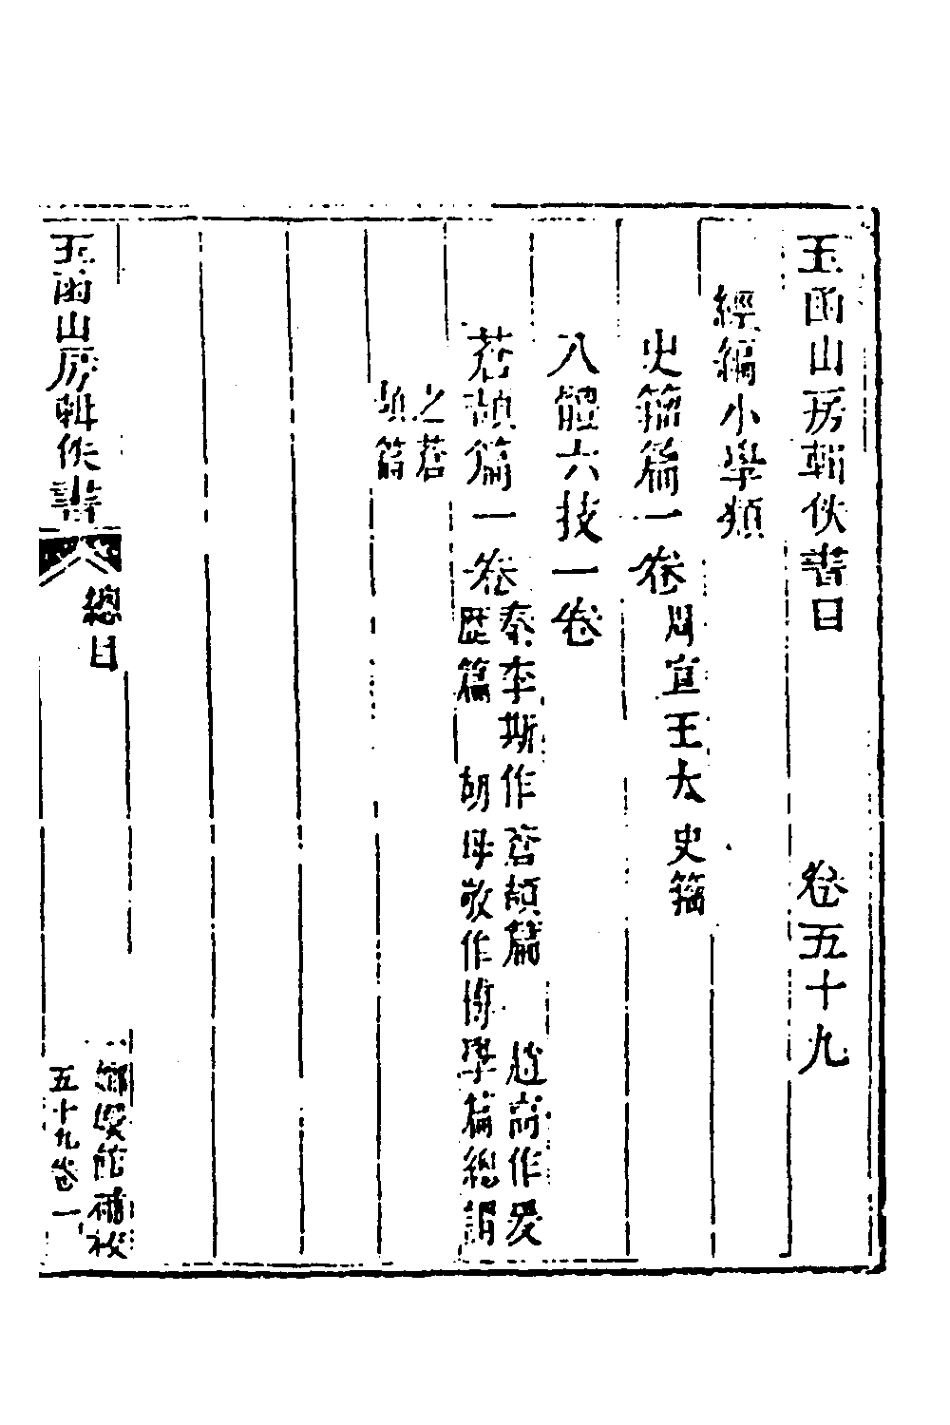 玉函山房輯佚書目 卷五十九
經編小學類
史籀篇一卷 周宣王太史籀
八體六技一卷
蒼頡篇一卷 秦李斯作蒼頡篇 趙高作爰
歷篇 胡母敬作博學篇總謂
之蒼
頡篇
玉函山房輯佚書 總目
嫏嬛館補校
五十九卷 一